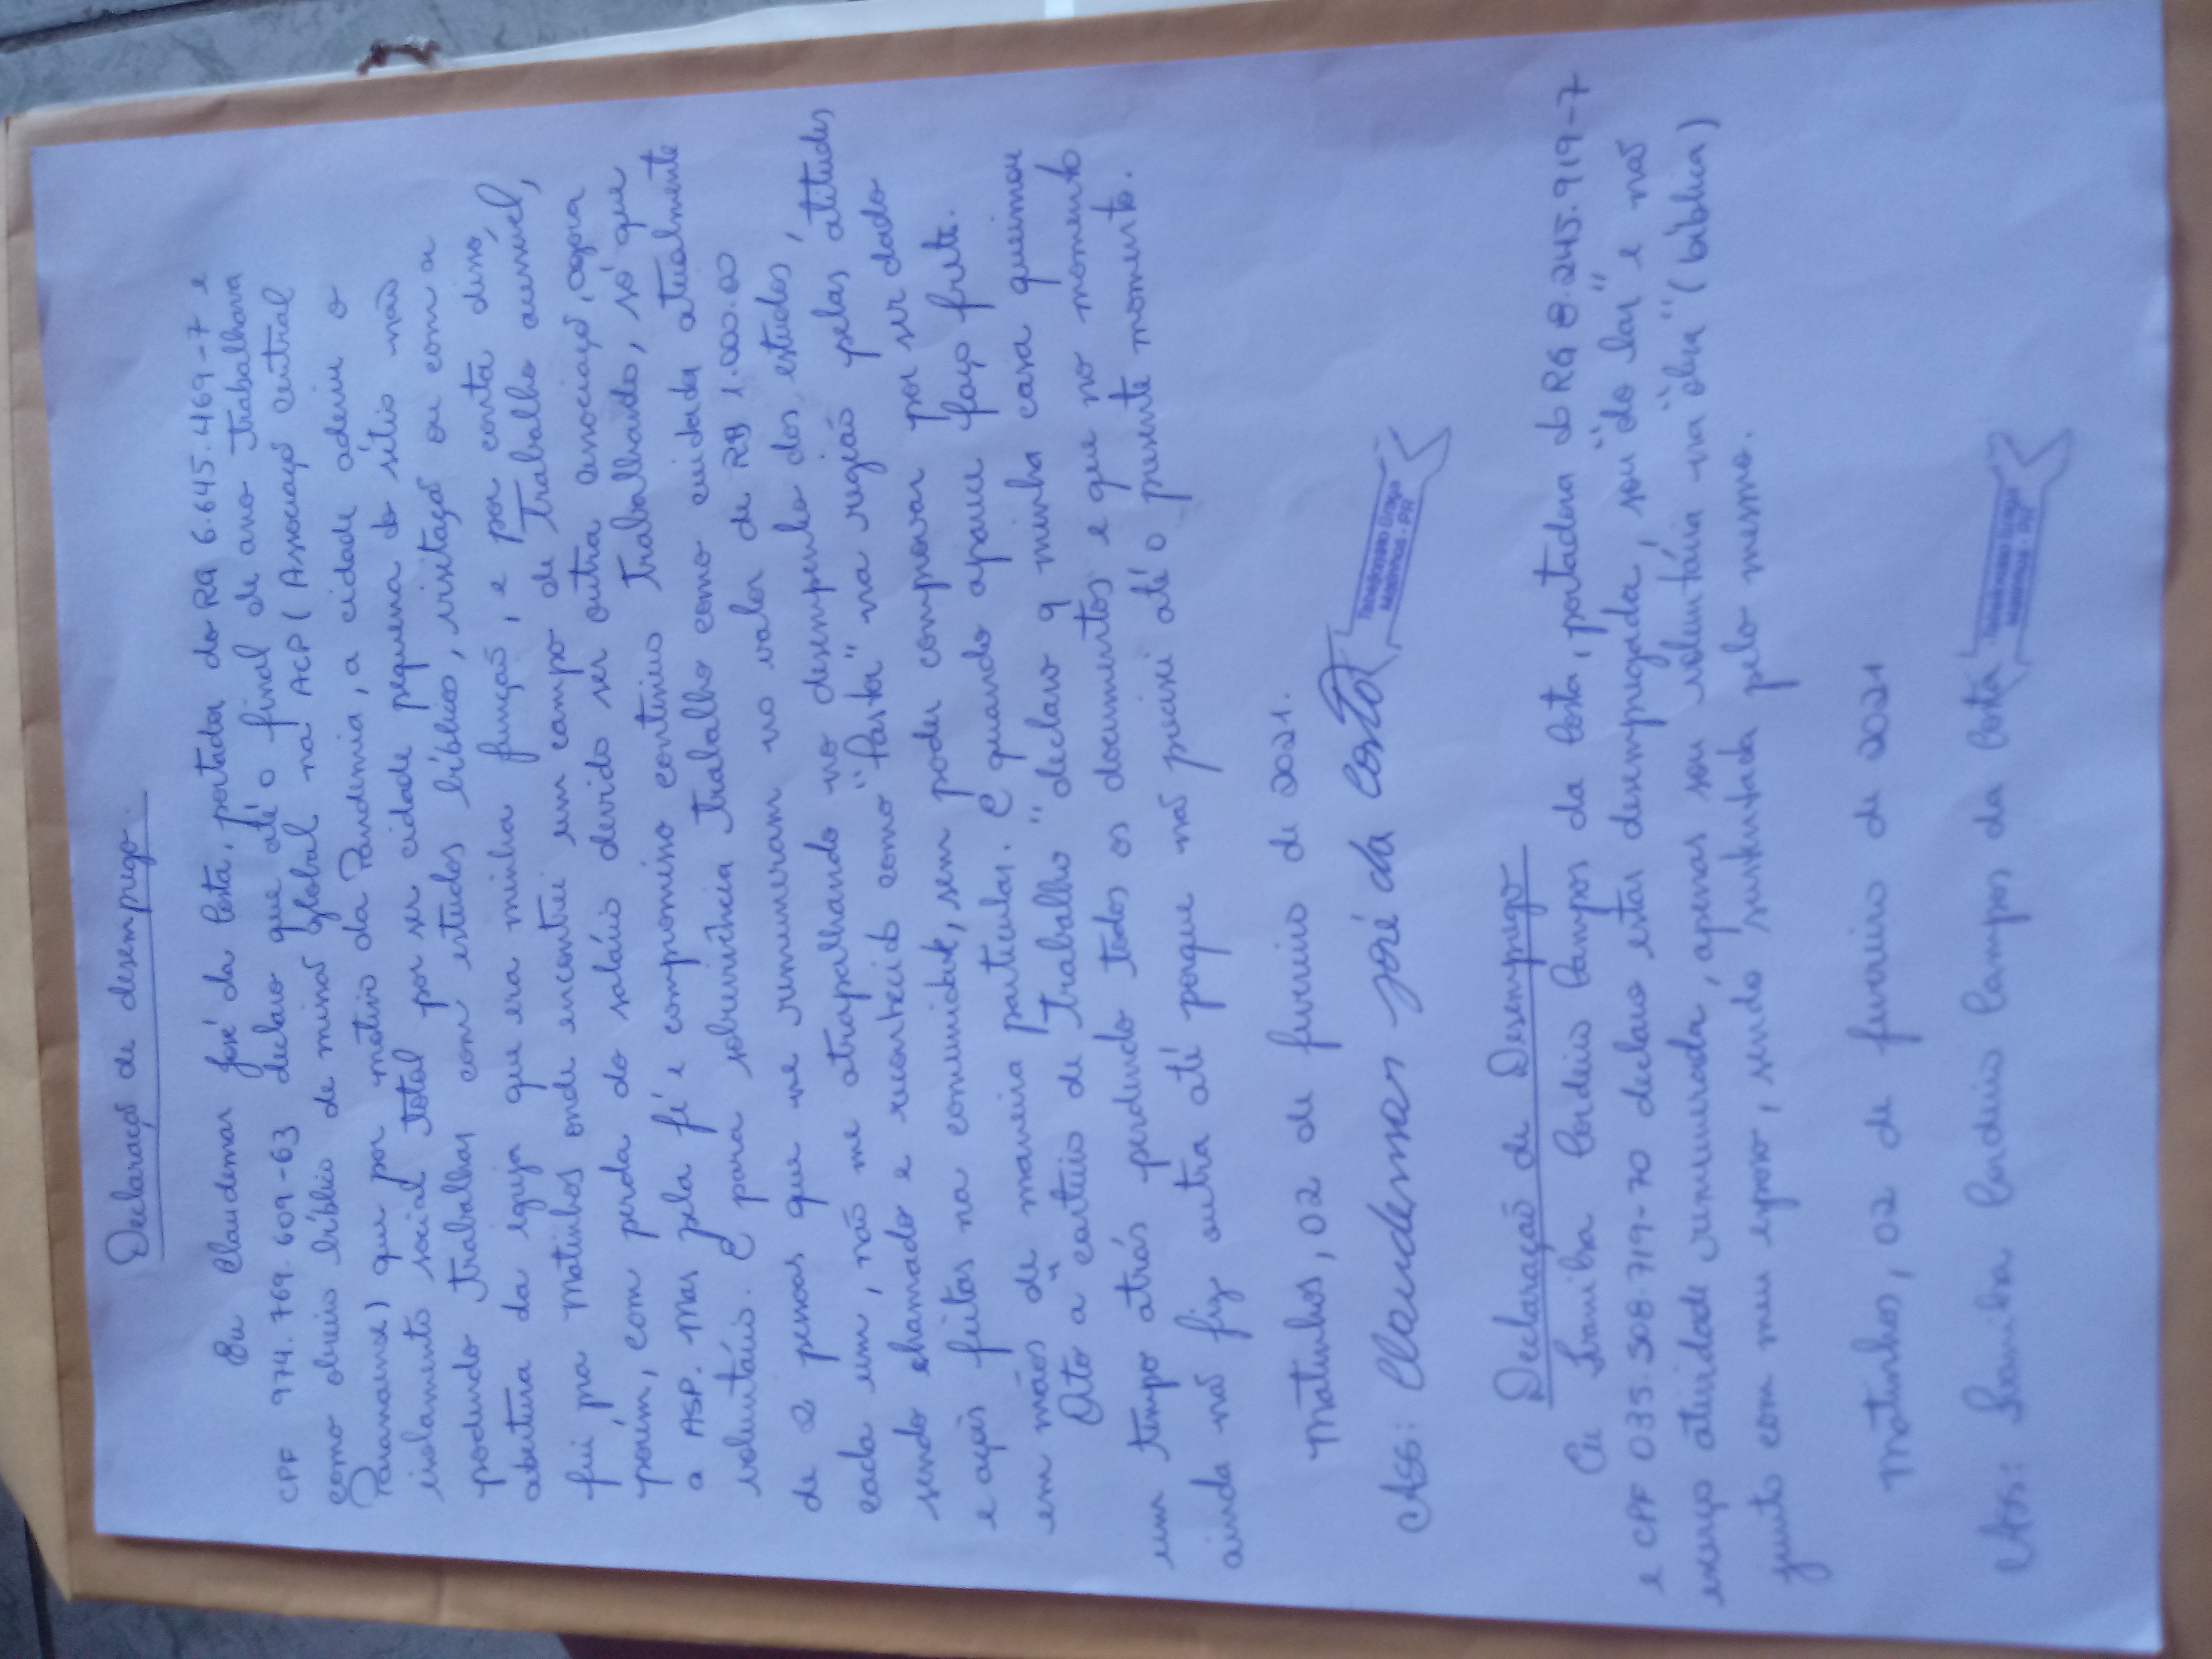 Declaração de desemprego
Eu Claudemar José da Costa, portador do RG 6.645.469-7 e
CPF 974.769.609-63 declaro que até o final de ano trabalhava
como obreiro bíblico de minas global na ACP (Associaçã central
Paranaense) que por motivo da Pandemia, a cidade aderiu o
isolamento social total por ser cidade pequena do sítio não
podendo trabalhar com estudos bíblicos, visitação ou com a
abertura da igreja que era minha função, e por conta disso,
fui, pra Matinhos onde encontrei um campo de Trabalho acessível,
porém, com perda do salário devido ser outra associação, agora
a ASP. Mas pela fé e compromisso continuo trabalhando, só que
voluntário. E para sobrevivência trabalho como cuidador atualmente
de 2 pessoas que me remuneram no valor de R$ 1.000.00
cada um, não me atrapalhando no desempenho dos estudos,
sendo chamado e reconhecido como "Pastor" na região pelas atitudes
e ações feitas na comunidade, sem poder comprovar por ser dado
em mãos de maneira particular. E quando aparece faço frete.
Qto a "carteira de trabalho" declaro q minha casa queimou
um tempo atrás perdendo todos os documentos e que no momento
ainda não fiz outra até porque não precisei até o presente momento.
Matinhos, 02 de fevereiro de 2021.
Ass: Claudemar José da Costa
Tabelionato Braga
Matinhos - PR
Declaração de Desemprego
Eu Cordeiro Campos da Costa, portadora do RG 8.245.919-7
e CPF 035.508.719-70 declaro estar desempregada, sou "do lar" e não
exerço atividade remunerada, apenas sou voluntária na "obra" (bíblica)
junto com meu esposo, sendo sustentada pelo mesmo.
Matinhos, 02 de fevereiro de 2021
Ass: Cordeiro Campos da Costa
Tabelionato Braga
Matinhos - PR